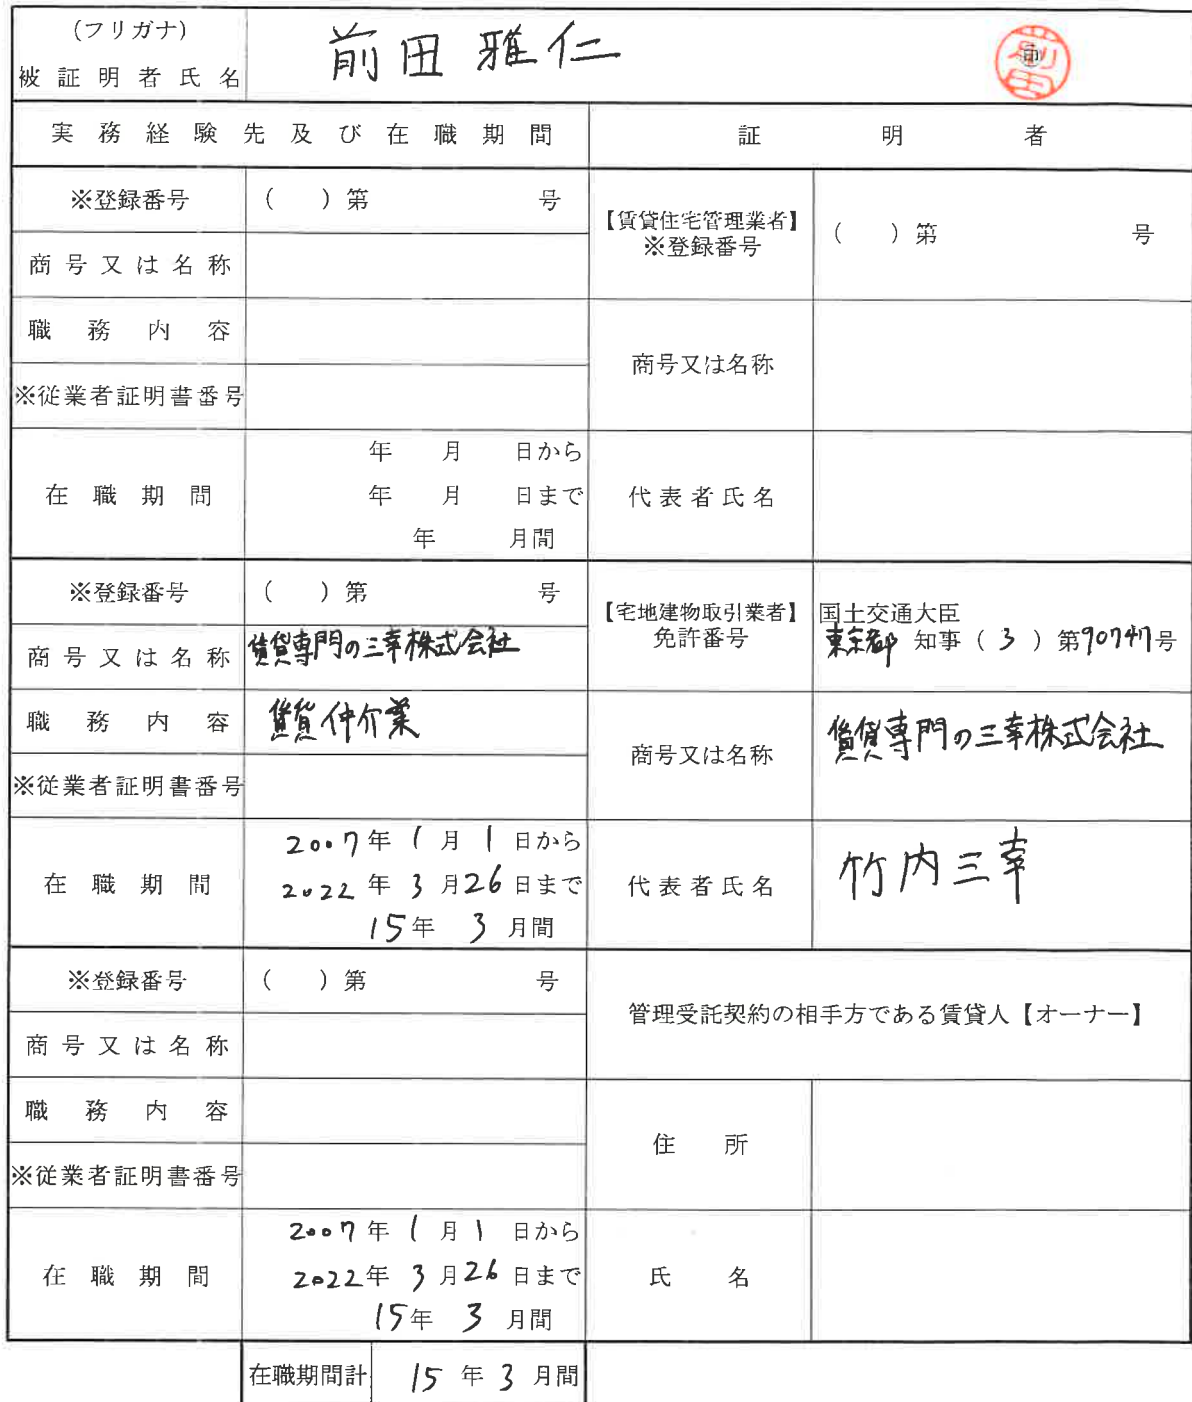 (フリガナ)
被証明者氏名 前田雅仁 印 前田
実務経験先及び在職期間 証明者
※登録番号 ( )第 号
【賃貸住宅管理業者】
※登録番号 ( )第 号
商号又は名称
職務内容
商号又は名称
※従業者証明書番号
在職期間
年 月 日から
年 月 日まで
年 月間
代表者氏名
※登録番号 ( )第 号
【宅地建物取引業者】
免許番号
国土交通大臣
東京都 知事(3)第90747号
商号又は名称 賃貸専門の三幸株式会社
職務内容 賃貸仲介業
商号又は名称 賃貸専門の三幸株式会社
※従業者証明書番号
在職期間
2007年1月1日から
2022年3月26日まで
15年3月間
代表者氏名 竹内三幸
※登録番号 ( )第 号
管理受託契約の相手方である賃貸人【オーナー】
商号又は名称
職務内容
住所
※従業者証明書番号
在職期間
2007年1月1日から
2022年3月26日まで
15年3月間
氏名
在職期間計 15年3月間